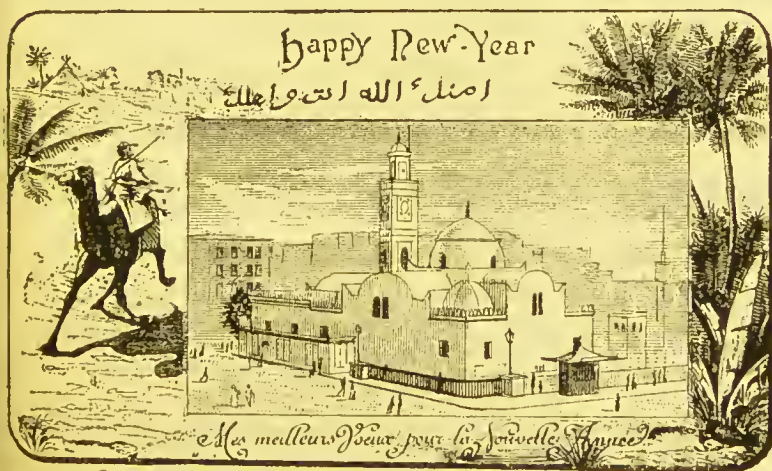 Happy New-Year
امنك الله انت واهلك
Mes meilleurs Voeux pour la Nouvelle Année.